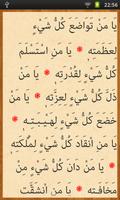 22:56
يا مَنْ تَواضَعَ كُلُّ شَيْءٍ
لِعَظَمَتِهِ يا مَنِ اسْتَسْلَمَ
كُلُّ شَيْءٍ لِقُدْرَتِهِ يا مَنْ
ذَلَّ كُلُّ شَيْءٍ لِعِزَّتِهِ يا مَنْ
خَضَعَ كُلُّ شَيْءٍ لِهَيْبَتِهِ
يا مَنِ انْقادَ كُلُّ شَيْءٍ لِمُلْكَتِهِ
يا مَنْ دانَ كُلُّ شَيْءٍ مِنْ
مَخافَتِهِ يا مَنِ انْشَقَّتِ